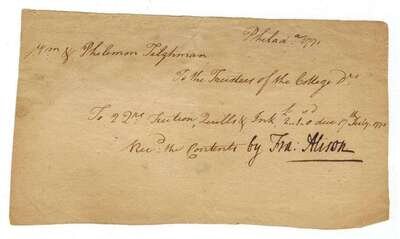 Philada 1771
Wm & Philemon Tilghman
To the Trustees of the College Drs
To 2 Qrs Tuition, Quills & Ink £2..5..0 due 17th July 1771
Recd. the Contents by Fra: Alison